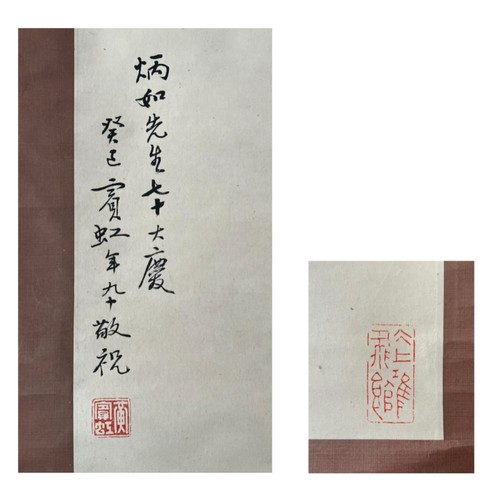 炳如先生七十大慶
癸巳賓虹年九十敬祝
黃賓虹